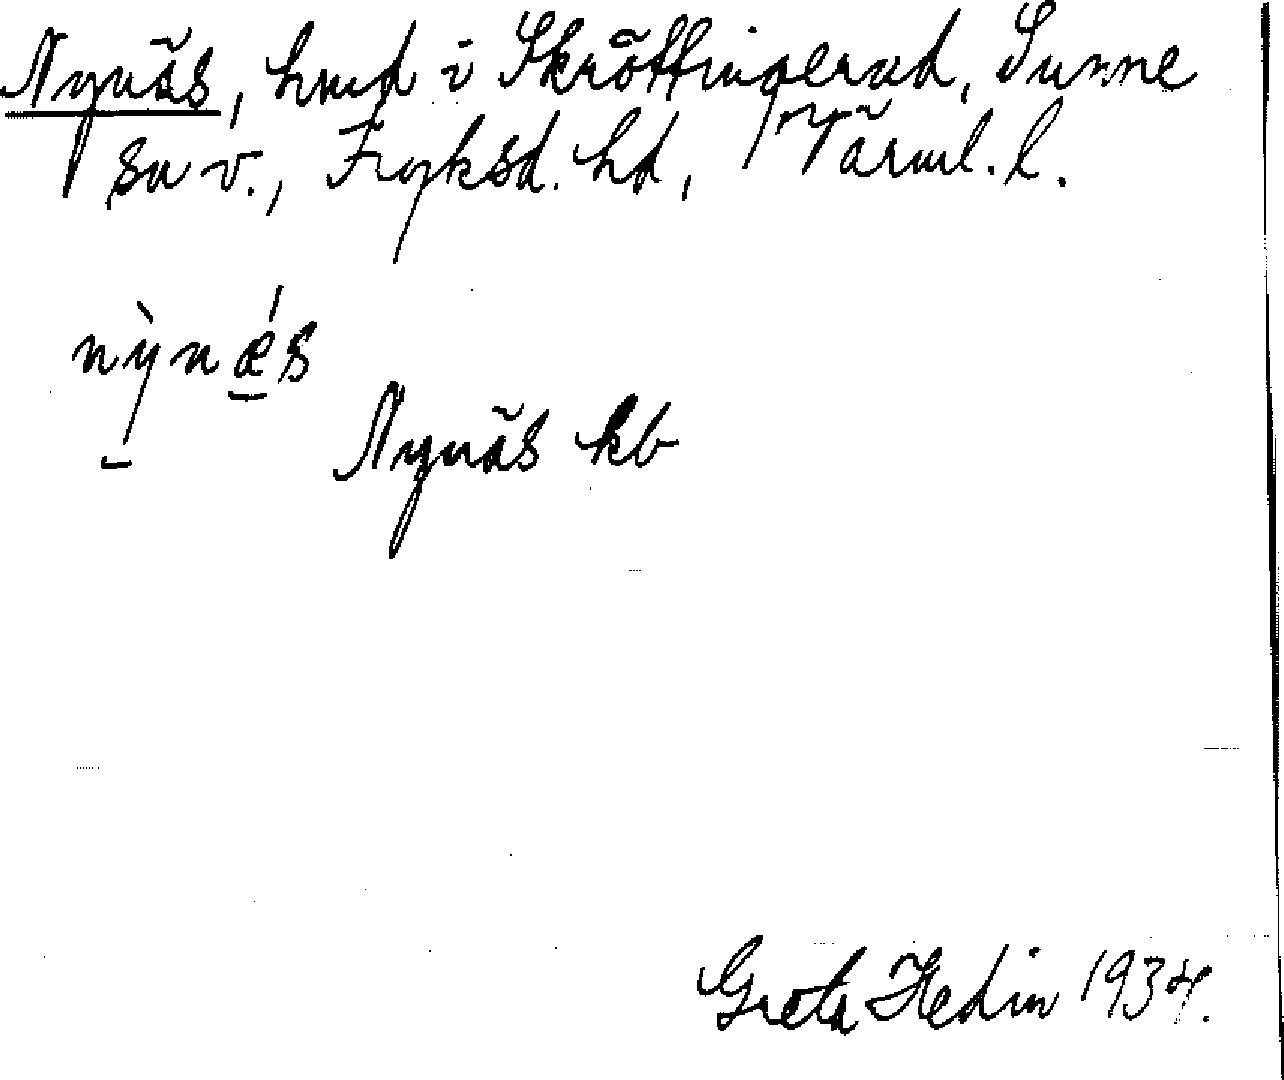 Nynäs, hmd i Skröttingerud, Sunne
sn v., Fryksd. hd, Värml. l.
nỳ̠nǽ̠s
Nynäs kb
Greta Hedin 1934.